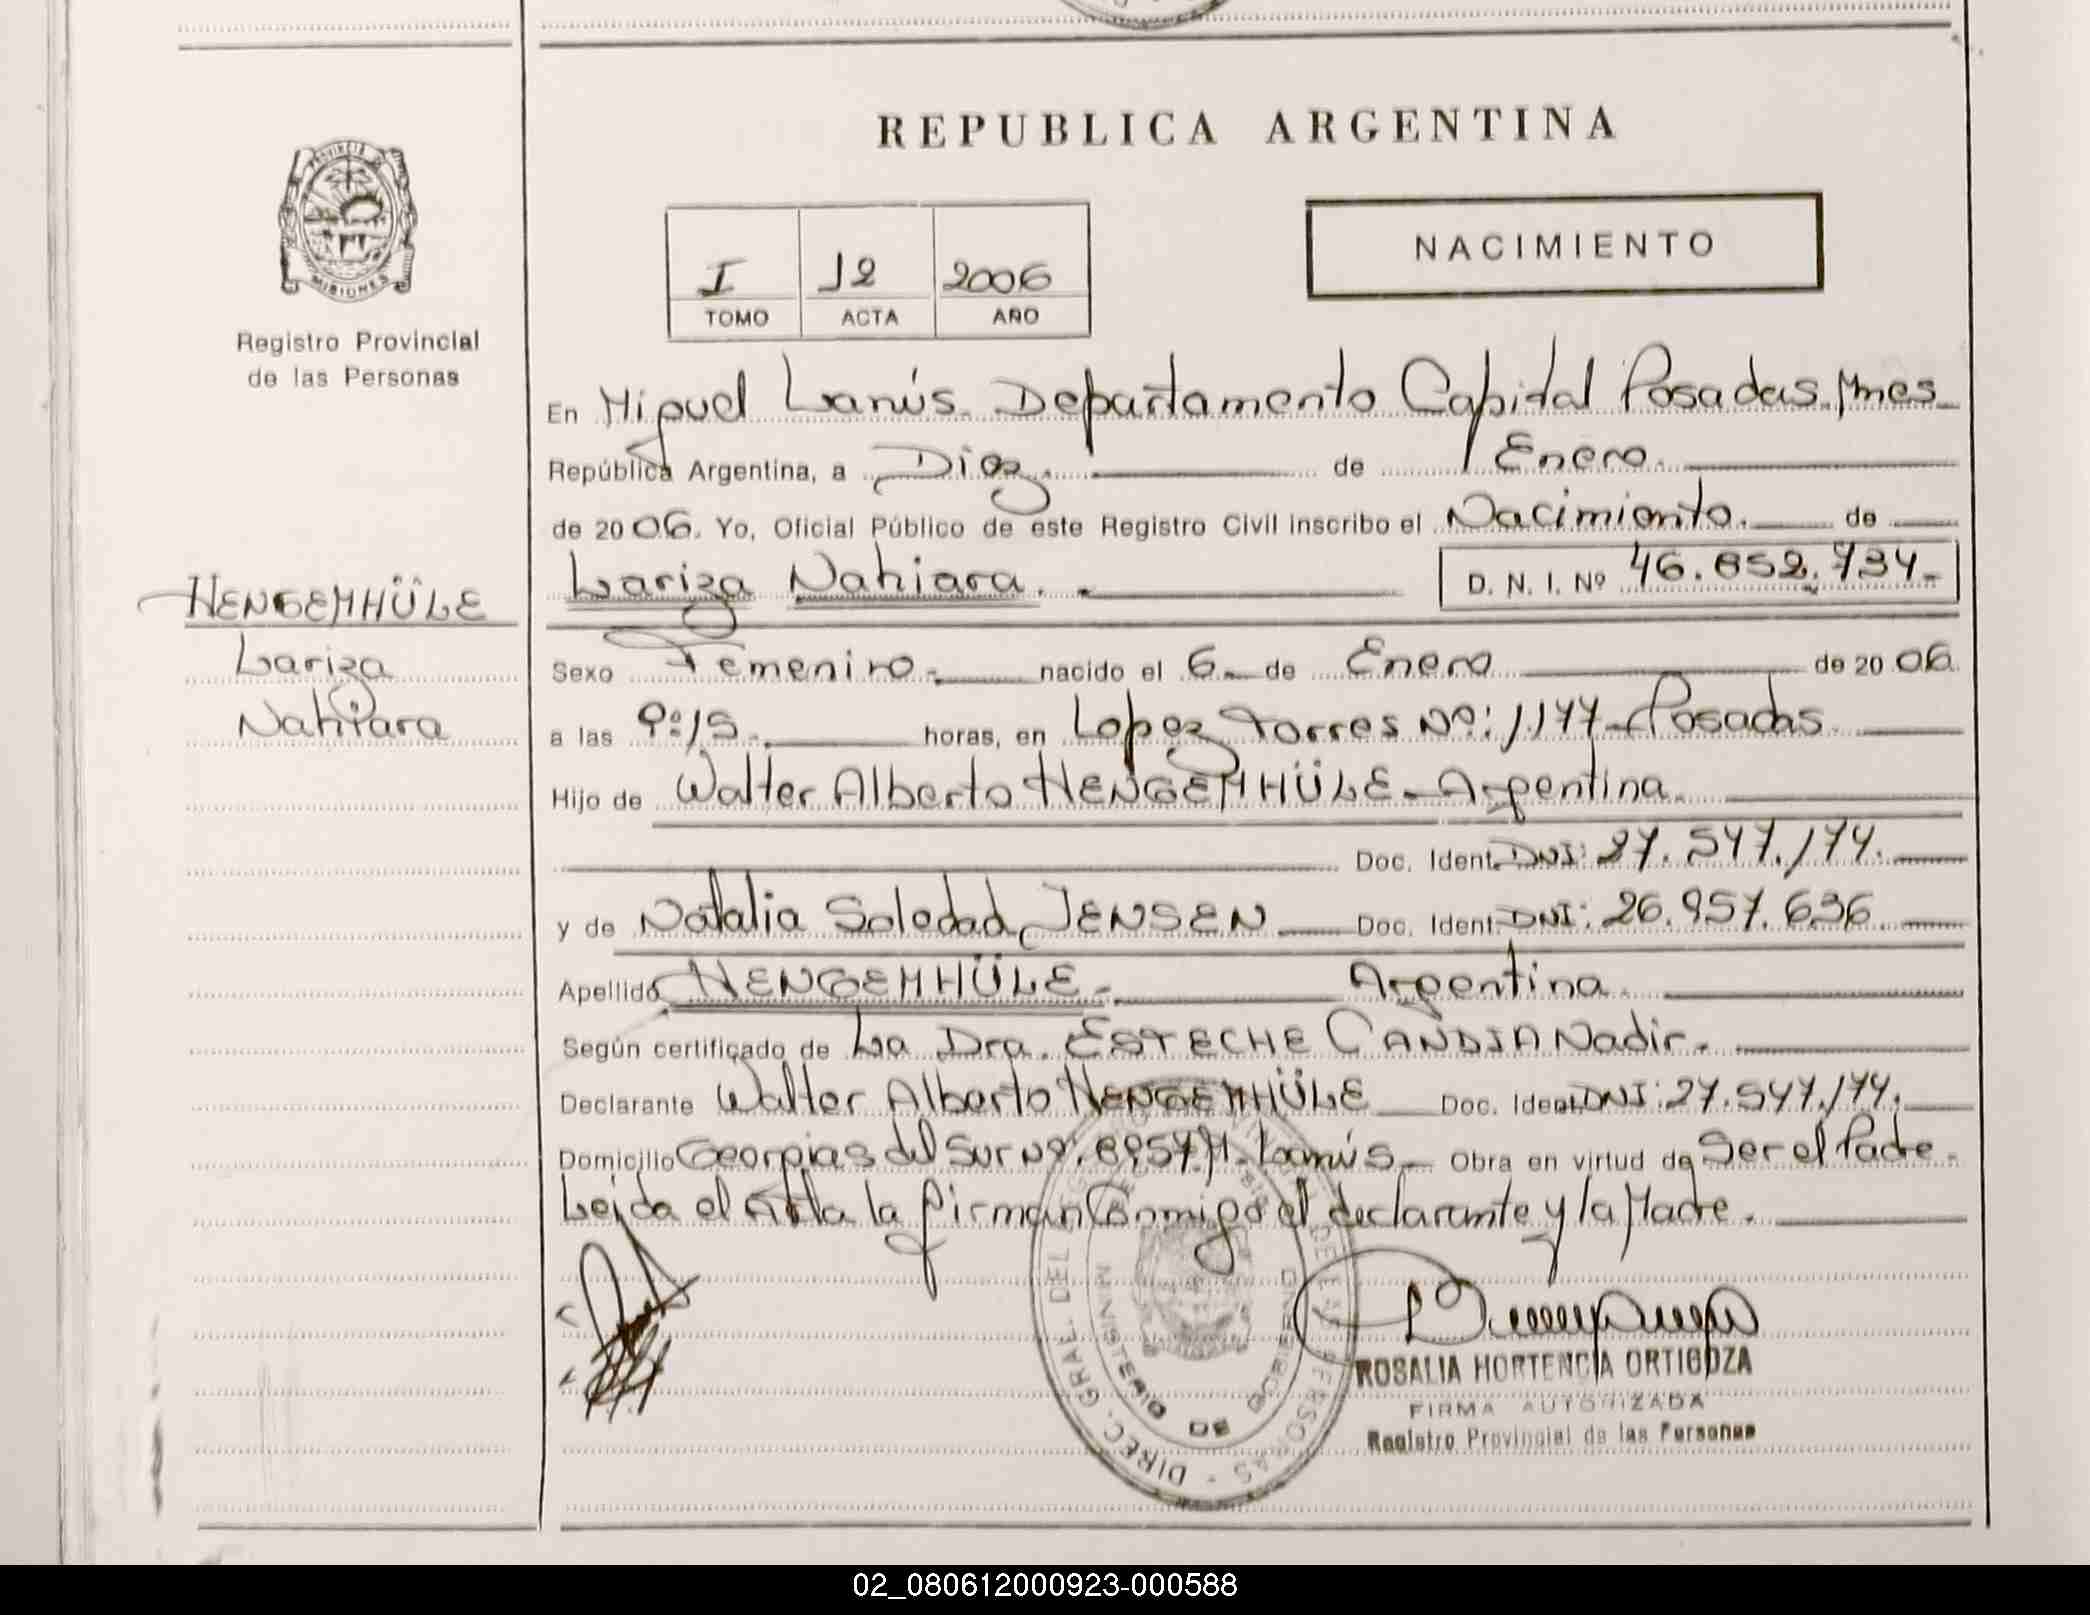 REPUBLICA ARGENTINA
PROVINCIA D MISIONES
Registro Provincial
de las Personas
I 12 2006
TOMO ACTA AÑO
NACIMIENTO
En Miguel Lanús. Departamento Capital Posadas. Mnes
República Argentina, a Diez. de Enero.
de 2006. Yo, Oficial Público de este Registro Civil inscribo el Nacimiento. de
Lariza Nahiara. D. N. I. Nº 46.852.734.
HENGEMHÜLE
Lariza
Nahiara
Sexo Femenino. nacido el 6 de Enero de 2006.
a las 9:15. horas, en Lopez Torres Nº: 1.177 - Posadas.
Hijo de Walter Alberto HENGEMHÜLE - Argentina.
Doc. Ident. DNI: 27.547.174.
y de Natalia Soledad JENSEN Doc. Ident. DNI: 26.957.636.
Apellido HENGEMHÜLE. Argentina.
Según certificado de La Dra. ESTECHE CANDIA Nadir.
Declarante Walter Alberto HENGEMHÜLE Doc. Ident. DNI: 27.547.174.
Domicilio Georgias del Sur Nº. 6957 M. Lanús. Obra en virtud de Ser el Padre.
Leida el Acta la firman Conmigo el declarante y la Madre.
ROSALIA HORTENCIA ORTIGOZA
FIRMA AUTORIZADA
Registro Provincial de las Personas
DIREC. GRAL. DEL PERSONAS
MINISTERIO DE GOBIERNO
02_080612000923-000588